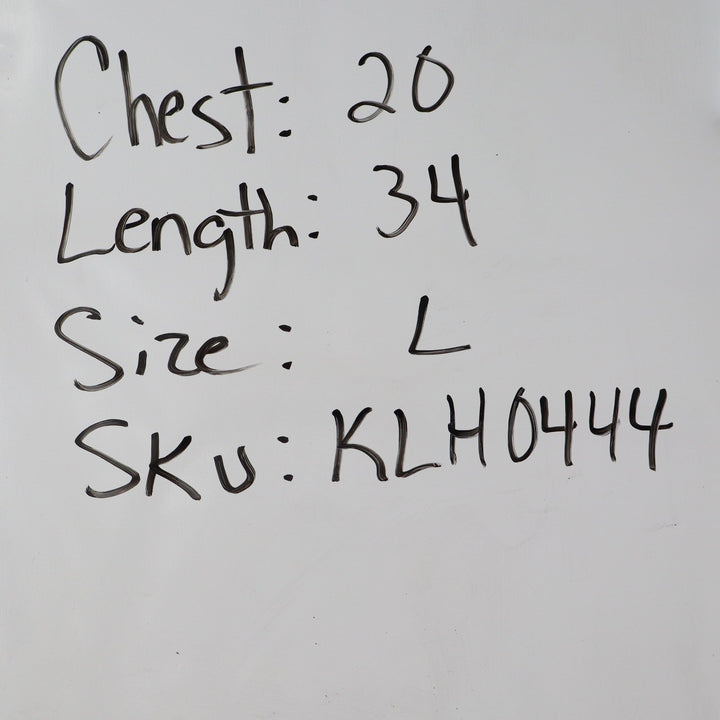 Chest: 20
Length: 34
Size: L
SKU: KLH0444